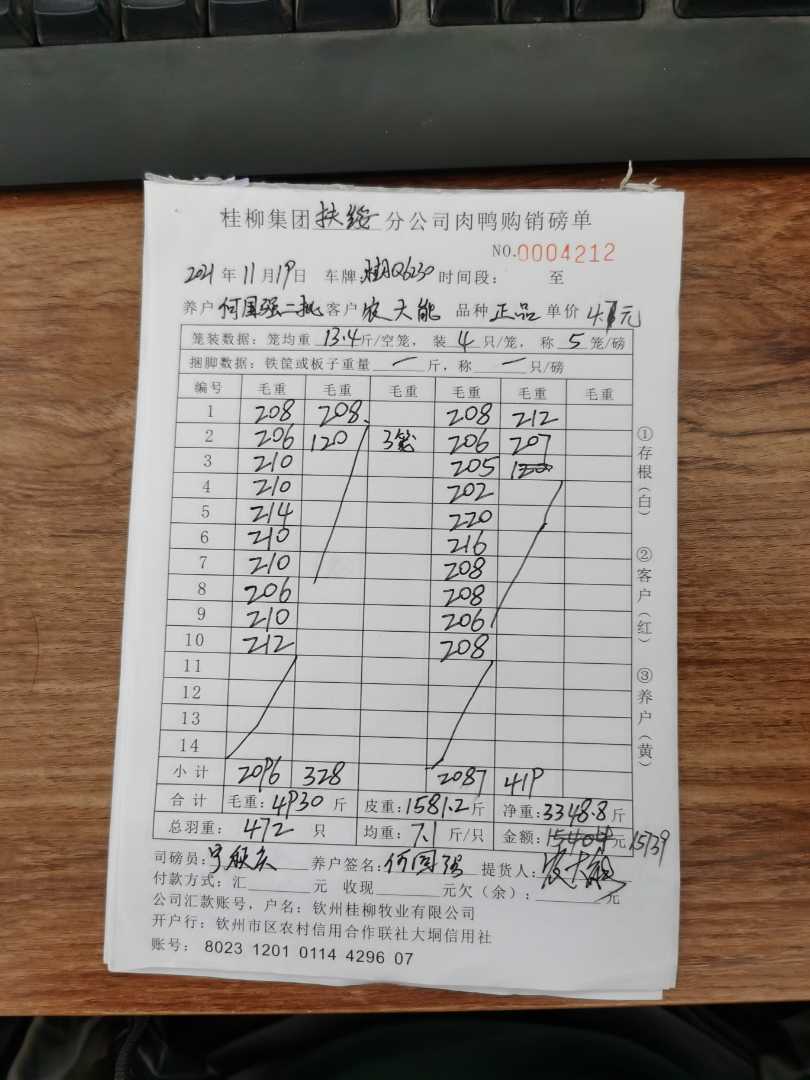 桂柳集团扶绥分公司肉鸭购销磅单
NO.0004212
2021年11月19日 车牌:桂AQ6230 时间段: 至
养户何国强二批客户农大能 品种正品单价4.7元
笼装数据:笼均重13.4斤/空笼,装4只/笼,称5笼/磅
捆脚数据:铁筐或板子重量一斤,称一只/磅
编号 毛重 毛重 毛重 毛重 毛重 毛重
1 208 208 208 212
2 206 120 3笼 206 207
3 210 205
4 210 202
5 214 220
6 210 216
7 210 208
8 206 208
9 210 206
10 212 208
11
12
13
14
小计 2096 328 2087 419
合计 毛重:4930斤 皮重:1581.2斤 净重:3348.8斤
总羽重:472只 均重:7.1斤/只 金额:15404元 15739
司磅员: 养户签名:何国强 提货人:农大能
付款方式:汇 元 收现 元欠(余): 元
公司汇款账号,户名:钦州桂柳牧业有限公司
开户行:钦州市区农村信用合作联社大垌信用社
账号: 8023 1201 0114 4296 07
①存根(白)
②客户(红)
③养户(黄)